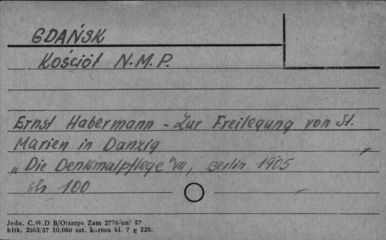 GDAŃSK
Kościół N.M.P.
Ernst Habermann - Zur Freilegung von St.
Marien in Danzig
„Die Denkmalpflege" VII, Berlin 1905
str 100
Jedn. C.W.D B/Olsztyn Zam 2776/on/ 57
hltk. 2563/57 10.000 szt. karton kl. 7 g 220.